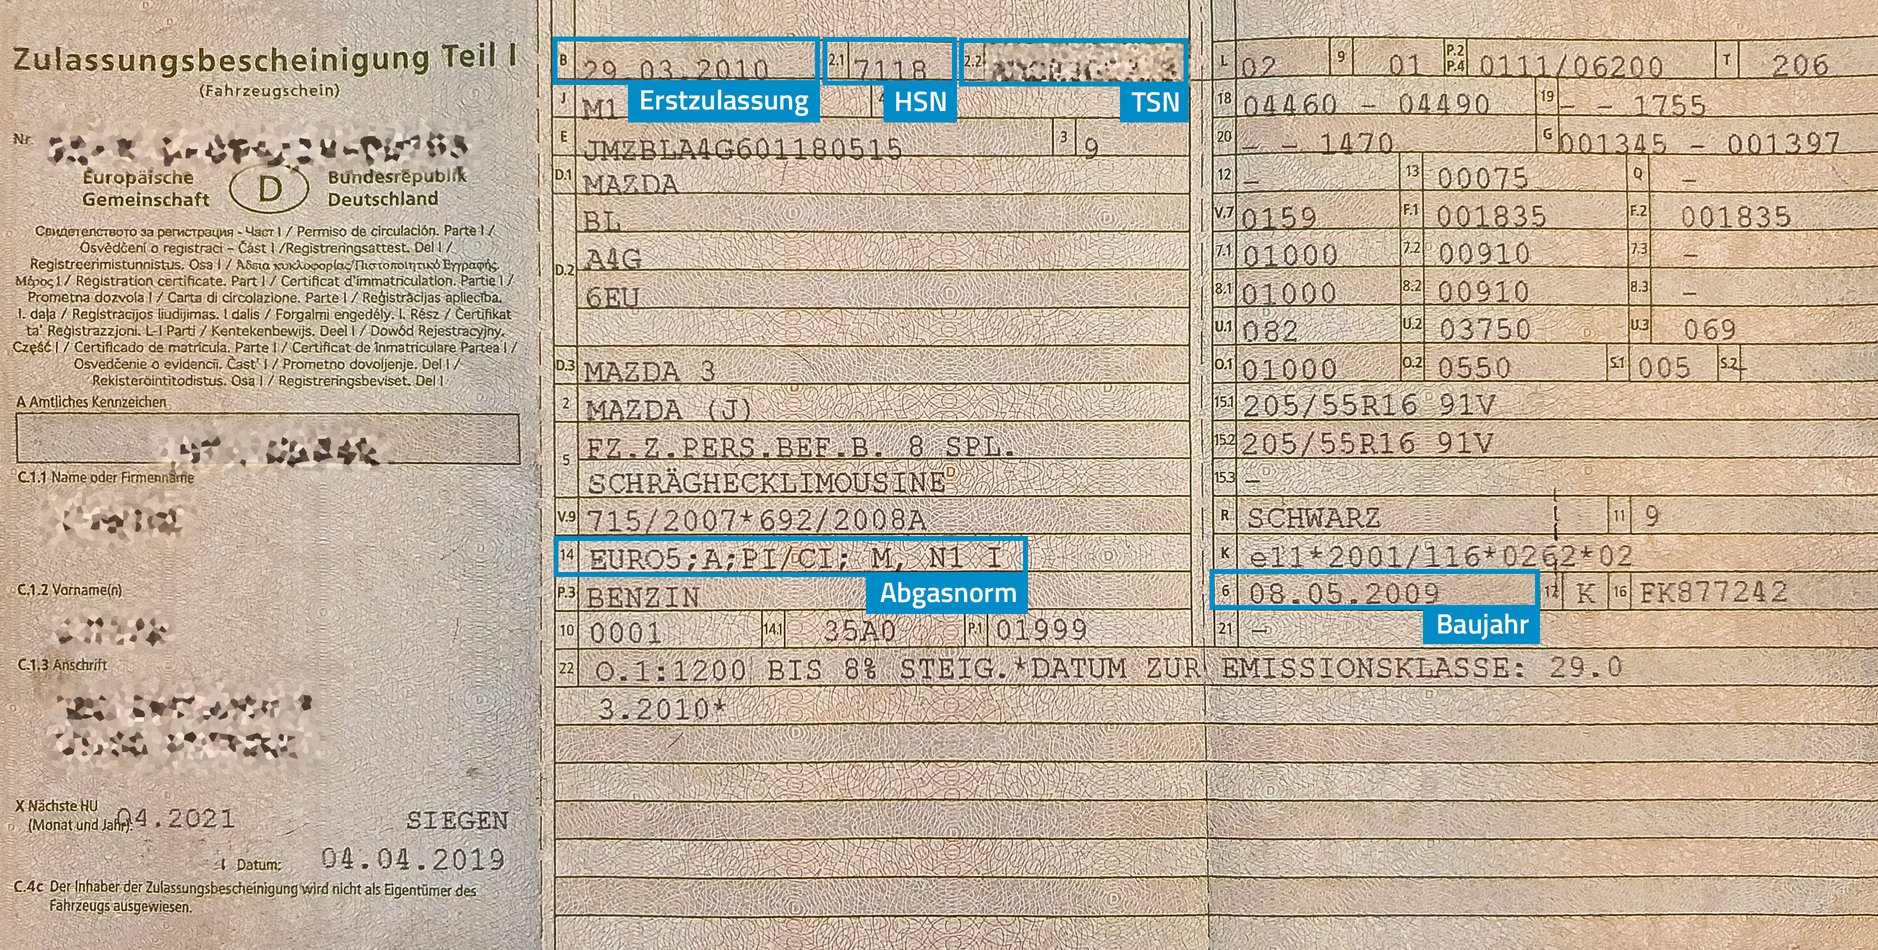 Zulassungsbescheinigung Teil I
(Fahrzeugschein)
Nr.
Europäische Gemeinschaft
D
Bundesrepublik Deutschland
Свидетелството за регистрация - Част I / Permiso de circulación. Parte I /
Osvědčení o registraci – Část I /Registreringsattest. Del I /
Registreerimistunnistus. Osa I / Άδεια κυκλοφορίας/Πιστοποιητικό Εγγραφής.
Μέρος I / Registration certificate. Part I / Certificat d'immatriculation. Partie I /
Prometna dozvola I / Carta di circolazione. Parte I / Reģistrācijas apliecība.
I. daļa / Registracijos liudijimas. I dalis / Forgalmi engedély. I. Rész / Ċertifikat
ta' Reġistrazzjoni. L-I Parti / Kentekenbewijs. Deel I / Dowód Rejestracyjny.
Część I / Certificado de matrícula. Parte I / Certificat de înmatriculare Partea I /
Osvedčenie o evidencii. Časť I / Prometno dovoljenje. Del I /
Rekisteröintitodistus. Osa I / Registreringsbeviset. Del I
A Amtliches Kennzeichen
C.1.1 Name oder Firmenname
C.1.2 Vorname(n)
C.1.3 Anschrift
X Nächste HU
(Monat und Jahr): 04.2021 SIEGEN
I Datum: 04.04.2019
C.4c Der Inhaber der Zulassungsbescheinigung wird nicht als Eigentümer des
Fahrzeugs ausgewiesen.
B 29.03.2010 2.1 7118 2.2
Erstzulassung HSN TSN
J M1 4
E JMZBLA4G601180515 3 9
D.1 MAZDA
BL
D.2 A4G
6EU
D.3 MAZDA 3
2 MAZDA (J)
5 FZ.Z.PERS.BEF.B. 8 SPL.
SCHRÄGHECKLIMOUSINE
V.9 715/2007*692/2008A
14 EURO5;A;PI/CI; M, N1 I
Abgasnorm
P.3 BENZIN
10 0001 14.1 35A0 P.1 01999
22 O.1:1200 BIS 8% STEIG.*DATUM ZUR EMISSIONSKLASSE: 29.0
3.2010*
L 02 9 01 P.2 P.4 0111/06200 T 206
18 04460 - 04490 19 - - 1755
20 - - 1470 G 001345 - 001397
12 - 13 00075 Q -
V.7 0159 F.1 001835 F.2 001835
7.1 01000 7.2 00910 7.3 -
8.1 01000 8.2 00910 8.3 -
U.1 082 U.2 03750 U.3 069
O.1 01000 O.2 0550 S.1 005 S.2 -
15.1 205/55R16 91V
15.2 205/55R16 91V
15.3 -
R SCHWARZ 11 9
K e11*2001/116*0262*02
6 08.05.2009 17 K 16 FK877242
Baujahr
21 -